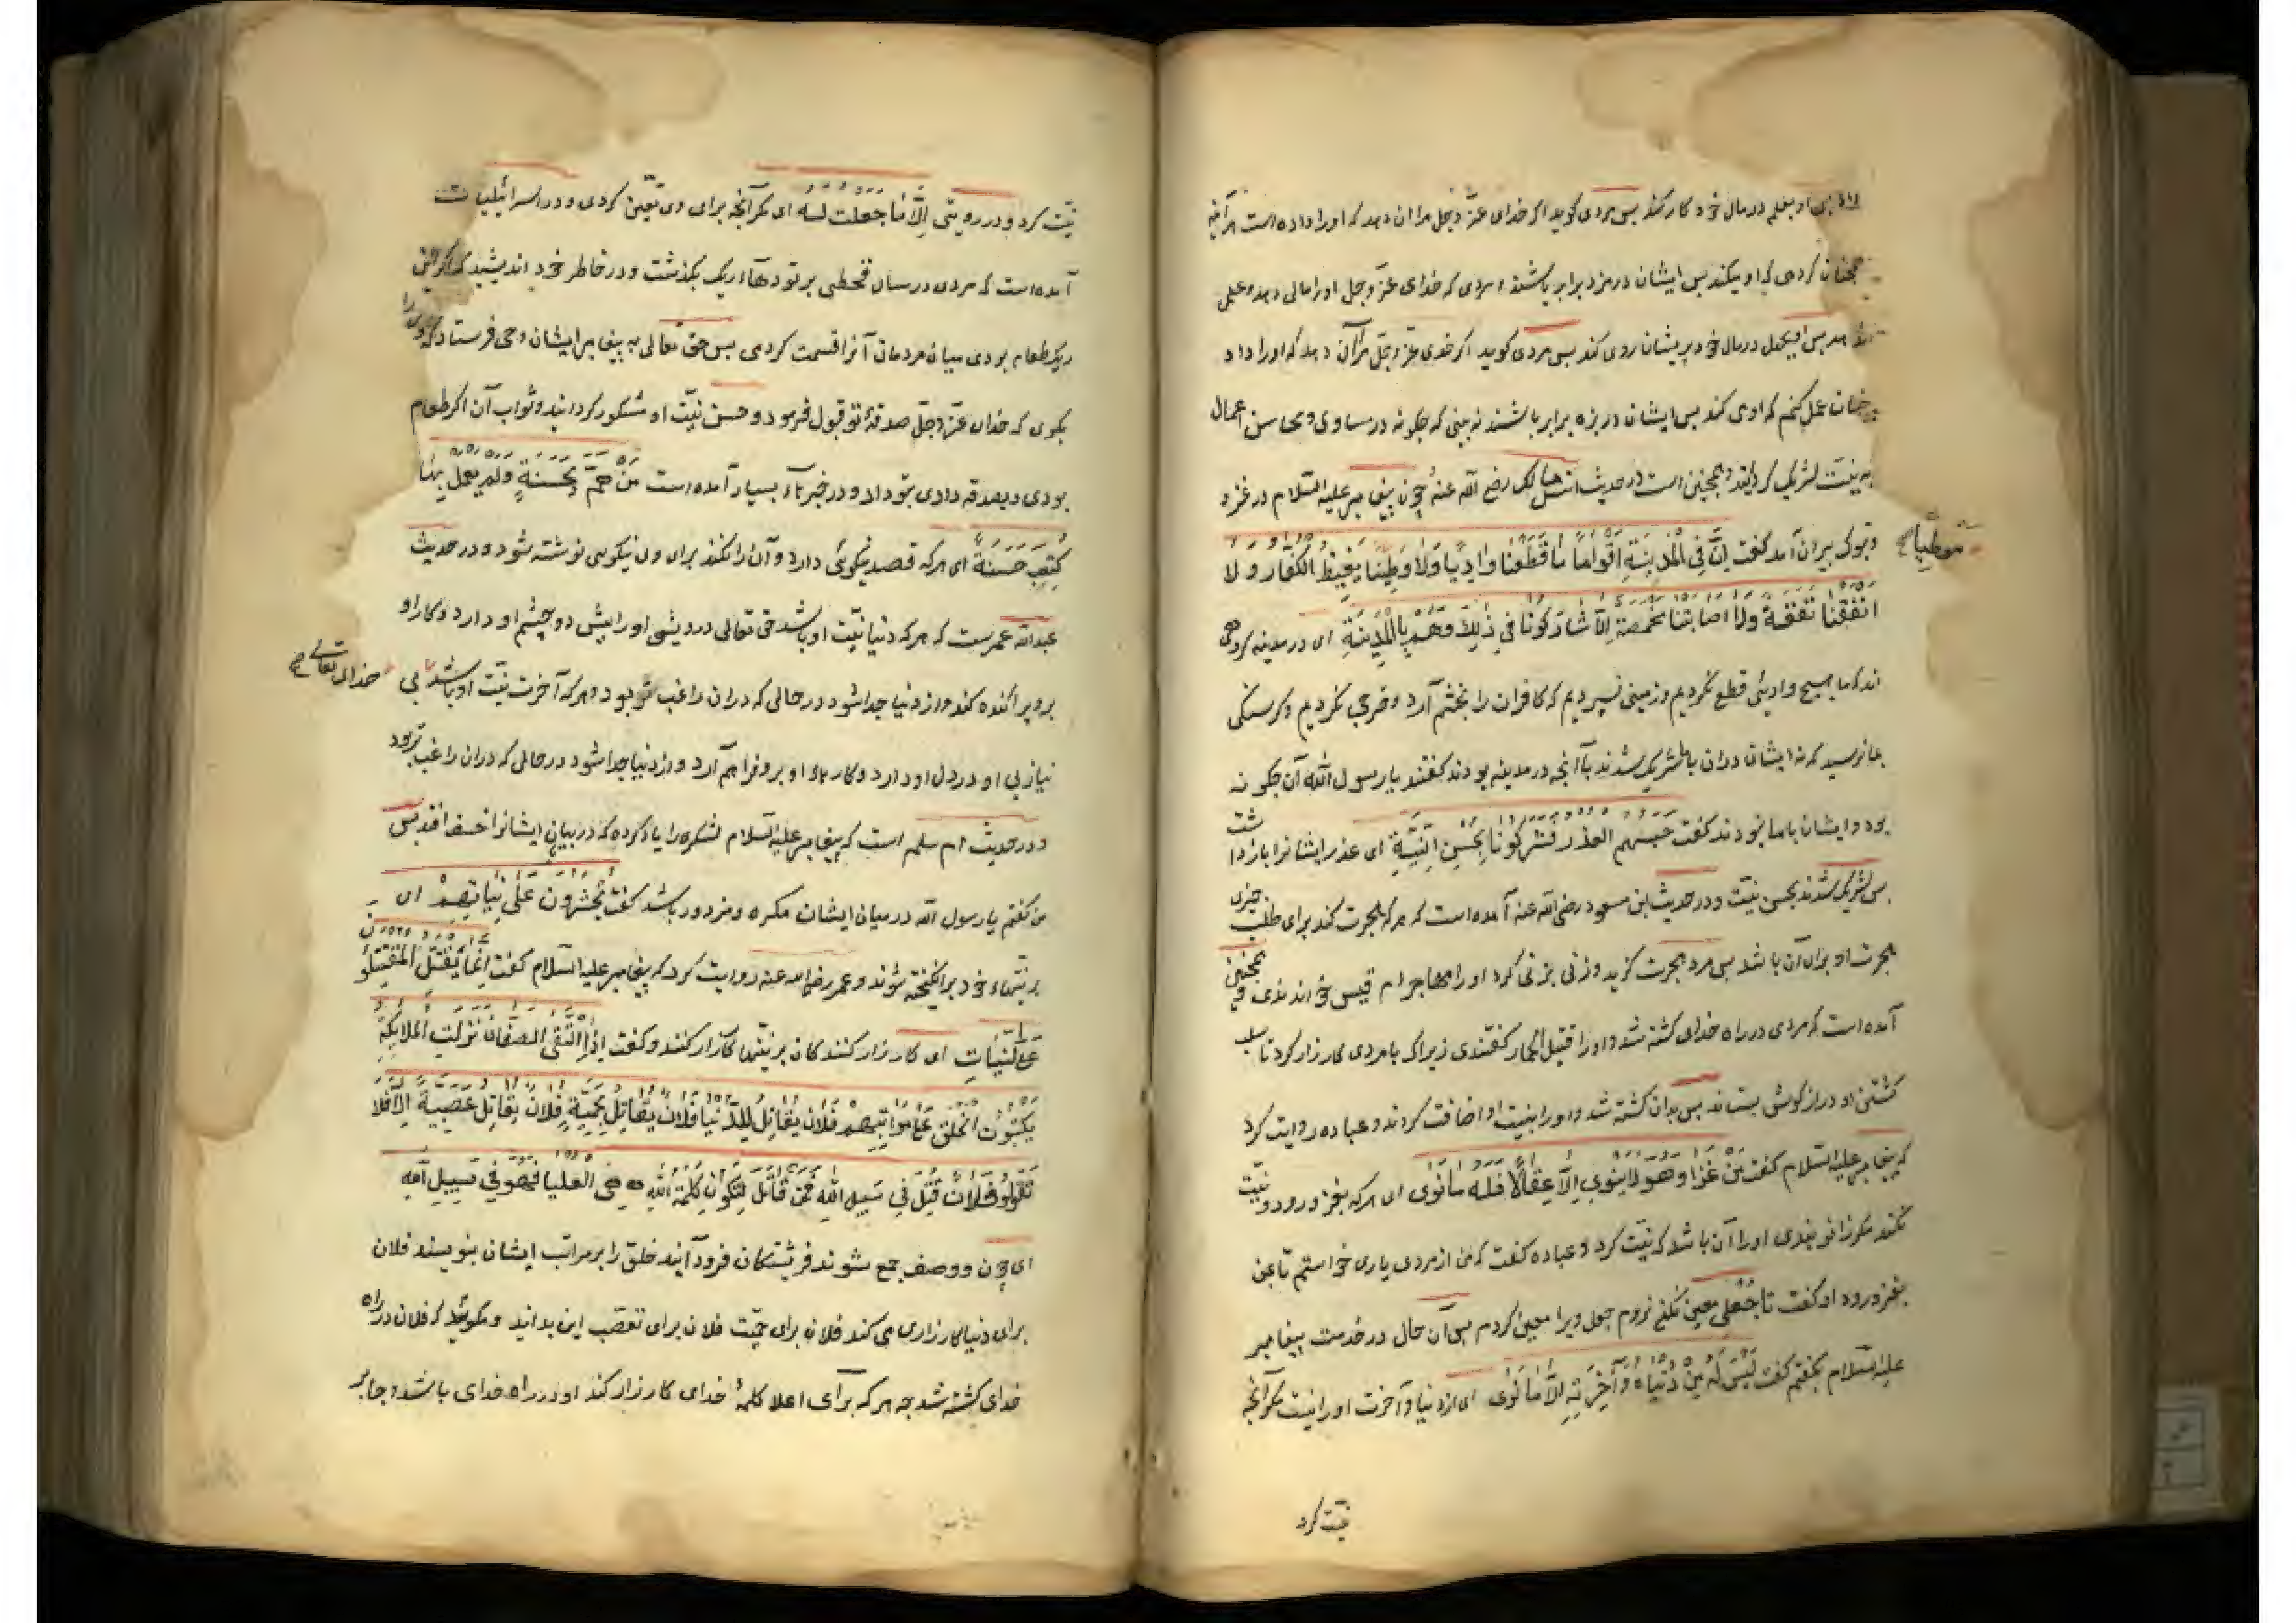 او بعلم در مال خود کار کند پس مردی کوید اکر خدای عزّ وجل مرا آن دهد که او را داده است هرآینه
همچنان کردمی که او میکند پس ایشان در مزد برابر باشند و مردی که خدای عزّ وجل او را مالی دهد و علمی
ندهد پس او بجهل در مال خود پریشان روی کند پس مردی کوید اکر خدی عزّ وجلّ مرا آن دهد که او را داد
چنان عمل کنم که او می کند پس ایشان در بزه برابر باشند نه بینی که چکونه در مساوی و محاسن اعمال
به نیّت شریک کردانید و همچنین است در حدیث انس مالک رضی الله عنه چون پیغامبر علیه السّلام در غزو
تبوک بیرون آمد کفت اِنَّ فِی الْمَدِینَةِ اَقْوَامًا مَا قَطَعْنَا وَادِیًا وَلَا وَطِئْنَا یَغِیظُ الْکُفَّارَ وَ لَا
موطئا صح
اَنْفَقْنَا نَفَقَةً وَلَا اَصَابَتْنَا مَخْمَصَةٌ اِلَّا شَارَکُونَا فِی ذٰلِکَ وَهُمْ بِالْمَدِینَةِ ای در مدینه کروهی
اند که ما هیچ وادیئی قطع نکردیم و زمینی نسپردیم که کافران را بخشم آرد و خرجی نکردیم و کرسنکی
بما نرسید که نه ایشان دران با ما شریک شدند با آنچه در مدینه بودند کفتند یا رسول الله آن چکونه
بود و ایشان با ما نبودند کفت حَبَسَهُمُ الْعُذْرُ فَشَرِکُونَا بِحُسْنِ النِّیَّةِ ای عذر ایشانرا بازداشت
پس شریک شدند بحسن نیّت و در حدیث ابن مسعود رضی الله عنه آمده است که هر که هجرت کند برای طلب چیزی
هجرت او برای آن باشد پس مرد هجرت کزید و زنی بزنی کرد او را مهاجر ام قیس خواندندی و همچنین
آمده است که مردی در راه خدای کشته شد و او را قتیل الحمار کفتندی زیراکه با مردی کارزار کرد تا سلب
کشتن او درازکوش بستاند پس بدان کشته شد و او را بنیت او اضافت کردند و عباده روایت کرد
که پیغامبر علیه السّلام کفت مَنْ غَزَا وَهُوَ لَا یَنْوِی اِلَّا عِقَالًا فَلَهُ مَا نَوٰی ای هر که بغزو رود و نیّت
نکند مکر زانوبندی او را آن باشد که نیّت کرد و عباده کفت که من از مردی یاری خواستم تا بمن
بغزو رود او کفت تا جُعلی معین نکنی نروم جعل ویرا معین کردم پس آن حال در خدمت پیغامبر
علیه السّلام بکفتم کفت لَیْسَ لَهُ مِنْ دُنْیَاهُ وَآخِرَتِهِ اِلَّا مَا نَوٰی ای از دنیا و آخرت او را نیست مکر آنچه
نیّت کرد
نیّت کرد و در رویتی اِلَّا مَا جَعَلْتَ لَهُ ای مکر آنچه برای وی تعیّن کردی و در اسرائیلیات
آمده است که مردی در سال قحطی بر تودهاء ریک بکذشت و در خاطر خود اندیشید که اکر این
ریک طعام بودی میان مردمان آنرا قسمت کردمی پس حق تعالی به پیغامبر ایشان وحی فرستاد که ویرا
بکوی که خدای عزّ وجلّ صدقهٔ تو قبول فرمود و حسن نیّت او مشکور کردانید و ثواب آن اکر طعام
بودی و بصدقه دادی بتو داد و در خبرهاء بسیار آمده است مَنْ هَمَّ بِحَسَنَةٍ وَلَمْ یَعْمَلْ بِهَا
کُتِبَ حَسَنَةً ای هر که قصد نیکوئی دارد و آن را نکند برای وی نیکویی نوشته شود و در حدیث
عبدالله عمرست که هر که دنیا نیّت او باشد حق تعالی درویشی او را پیش دو چشم او دارد و کار او
برو پراکنده کند و از دنیا جدا شود در حالی که دران راغب تر بود و هر که آخرت نیّت او باشد بی
خدای تعالی صح
نیازیی او در دل او دارد و کارهاء او برو فراهم آرد و از دنیا جدا شود در حالی که دران راغب تر بود
و در حدیث ام سلمه است که پیغامبر علیه السّلام لشکری را یاد کرده که در بیابان ایشانرا خسف افتد پس
من کفتم یا رسول الله در میان ایشان مکره و مزدور باشد کفت یُحْشَرُونَ عَلٰی نِیَّاتِهِمْ ای
بر نیّتهاء خود برانکیخته شوند و عمر رضی الله عنه روایت کرد که پیغامبر علیه السّلام کفت اِنَّمَا یَقْتَتِلُ الْمُقْتَتِلُونَ
عَلَی النِّیَّاتِ ای کارزار کنندکان بر نیّتها کارزار کنند و کفت اِذَا الْتَقَی الصَّفَّانِ نَزَلَتِ الْمَلَائِکَةُ
یَکْتُبُونَ الْخَلْقَ عَلٰی مَرَاتِبِهِمْ فُلَانٌ یُقَاتِلُ لِلدُّنْیَا فُلَانٌ یُقَاتِلُ حَمِیَّةً فُلَانٌ یُقَاتِلُ عَصَبِیَّةً اَلَا فَلَا
تَقُولُوا فُلَانٌ قُتِلَ فِی سَبِیلِ اللهِ فَمَنْ قَاتَلَ لِتَکُونَ کَلِمَةُ اللهِ هِیَ الْعُلْیَا فَهُوَ فِی سَبِیلِ اللهِ
ای چون دو صف جمع شوند فریشتکان فرود آیند خلق را بر مراتب ایشان بنویسند فلان
برای دنیا کارزار می کند فلان برای حمیّت فلان برای تعصّب این بدانید و مکوئید که فلان در راه
خدای کشته شد چه هر که برای اعلا کلمهٔ خدای کارزار کند او در راه خدای باشد و جابر